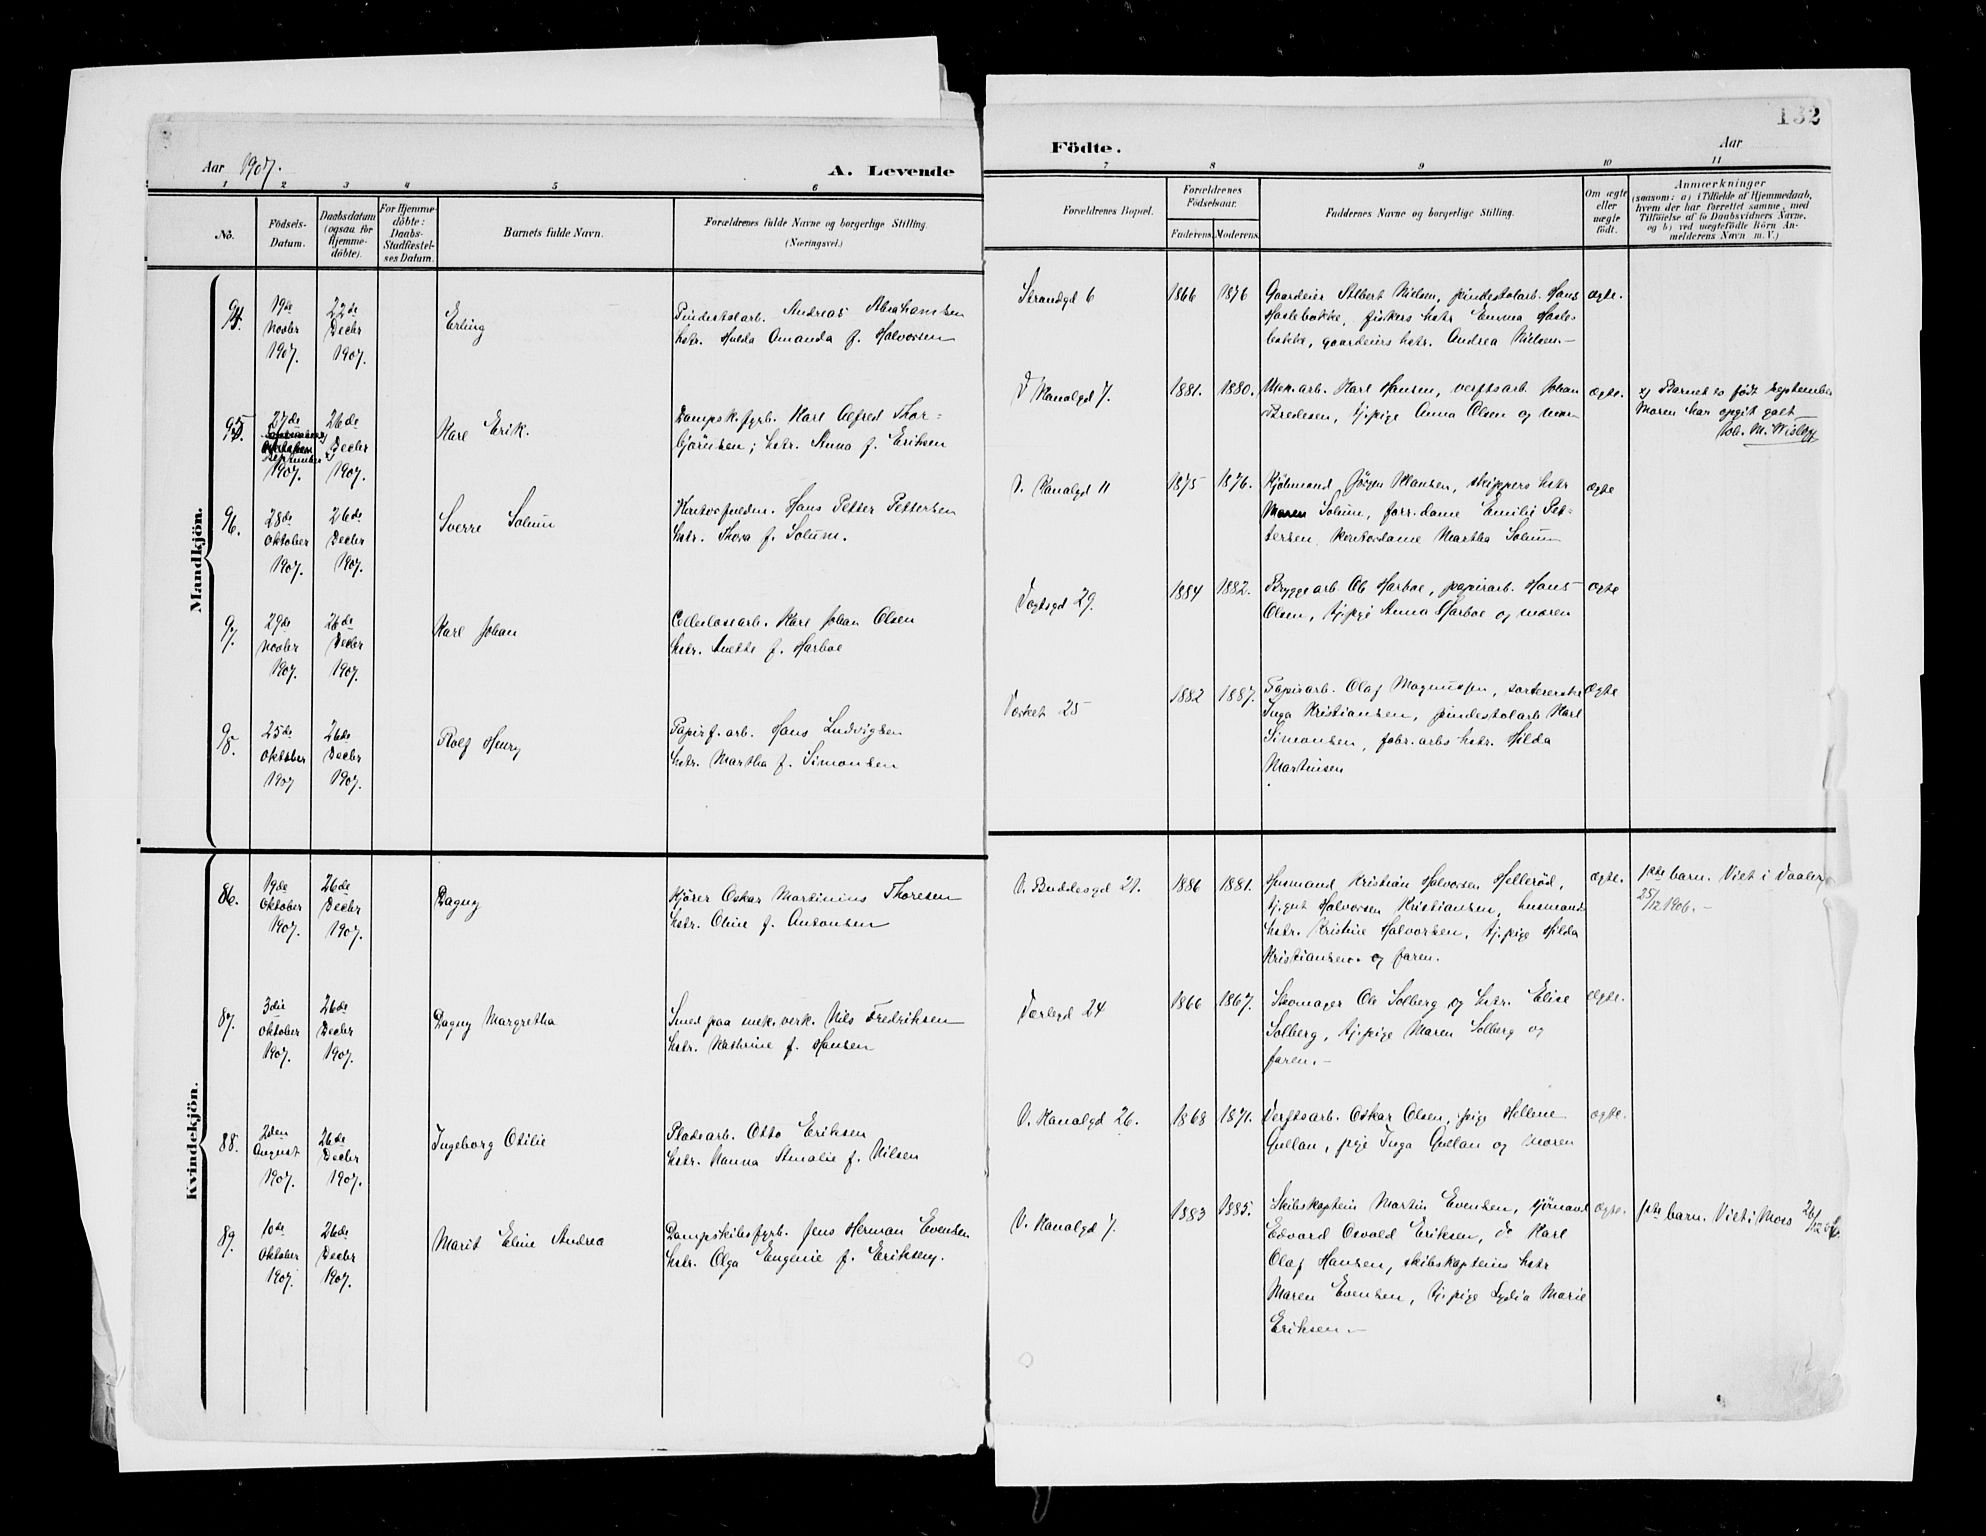 132
Aar 1907.
A. Levende
Födte.
Aar
1 2 3 4 5 6 7 8 9 10 11
No.
Födsels-
Datum.
Daabsdatum
(ogsaa for
Hjemme-
döbte).
For Hjemme-
döbte:
Daabs-
Stadfæstel-
ses Datum.
Barnets fulde Navn.
Forældrenes fulde Navne og borgerlige Stilling.
(Næringsvei.)
Forældrenes Bopæl.
Forældrenes
Födselsaar.
Faderens. Moderens.
Faddernes Navne og borgerlige Stilling.
Om ægte
eller
uægte
födt.
Anmærkninger
(saasom: a) i Tilfælde af Hjemmedaab,
hvem der har forrettet samme, med
Tilföielse af to Daabsvidners Navne,
og b) ved uægtefödte Börn An-
melderens Navn m. V.)
Mandkjön.
94.
19de
Novbr
1907.
22de
Decbr
1907.
Erling
Pindestolarb. Andreas Abrahamsen
hstr. Hulda Amanda f. Halvorsen
Strandgd 6
1866
1876
Gaardeier Albert Nielsen, pindestolarb. Hans
Haslebakke, fiskers hstr Emma Hasle-
bakke, gaardeiers hstr. Andrea Nielsen.-
ægte.
95.
27de
september
1907.
26de
Decbr
1907.
Karl Erik.
Dampsk.fyrb. Karl Alfred Thor=
bjørnsen; hstr. Anna f. Eriksen
V Kanalgd 7.
1881.
1880.
Mek.arb. Karl Hansen, verftsarb Johan
Bredesen, tj.pige Anna Olsen og mor
ægte.
x) Barnet er født september
Moren har opgit galt
M. Wisløff
96.
28de
Oktober
1907.
26de
Decbr
1907.
Sverre Solum
Kontorfuldm. Hans Petter Pettersen
hstr. Thora f. Solum.
V. Kanalgd 11
1875
1876.
Kjøbmand Jörgen Hansen, skippers hstr
Maren Solum, forr.dame Emilie Pet-
tersen, kontordame Martha Solum
ægte
97.
29de
Novbr
1907.
26de
Decbr
1907.
Karl Johan
Cellulosearb. Karl Johan Olsen
hstr. Anette f. Harboe
Vogtsgd 29.
1884
1882.
Bryggearb Ole Harboe, papirarb. Hans
Olsen, tj.pige Anna Harboe og moren
ægte
98.
25de
Oktober
1907
26de
Decbr
1907.
Rolf Henry
Papirf.arb. Hans Ludvigsen
hstr. Martha f. Simonsen
Værket 25
1882
1887.
Papirarb. Olaf Magnussen, sortererske
Inga Kristiansen, pindestolarb Karl
Simonsen, fabr.arbs hstr. Hilda
Martinsen
ægte
Kvindekjön.
86.
19de
Oktober
1907.
26de
Decbr
1907.
Dagny
Kjører Oskar Martinius Thoresen
hstr. Oline f. Antonsen
V. Buddesgd 21.
1886
1881.
Husmand Kristian Halvorsen Hellerød,
tj.gut Halvorsen Kristiansen, husmands
hstr. Kristine Halvorsen, tj.pige Hilda
Kristiansen og faren.
ægte.
1ste barn. Viet i Vaaler
25/12 1906.-
87.
3die
Oktober
1907.
26de
Decbr
1907.
Dagny Margretha
Smed paa mek.verk. Nils Fredriksen
hstr. Kathrine f. Hansen
Værlegd 24
1866
1867.
Skomager Ole Solberg og hstr. Elise
Solberg, tj.pige Maren Solberg og
faren.-
ægte.
88.
2den
August
1907.
26de
Decbr
1907.
Ingeborg Otilie
Pladsarb. Otto Eriksen
hstr. Hanna Amalie f. Nilsen
V. Kanalgd 26.
1868
1871.
Verftsarb. Oskar Olsen, pige Hellene
Gullan, pige Inga Gullan og moren
ægte.
89.
10de
Oktober
1907.
26de
Decbr
1907.
Marit Eline Andrea
Dampskibsfyrb. Jens Herman Evensen
hstr. Olga Eugenie f. Eriksen.
V. Kanalgd 7.
1883
1885.
Skibskaptein Martin Evensen, sjömand
Edvard Osvald Eriksen, do Karl
Olaf Hansen, skibskapteins hstr
Maren Evensen, tj.pige Lydia Marie
Eriksen.-
ægte.
1ste barn. Viet i Moss 26/12 06.